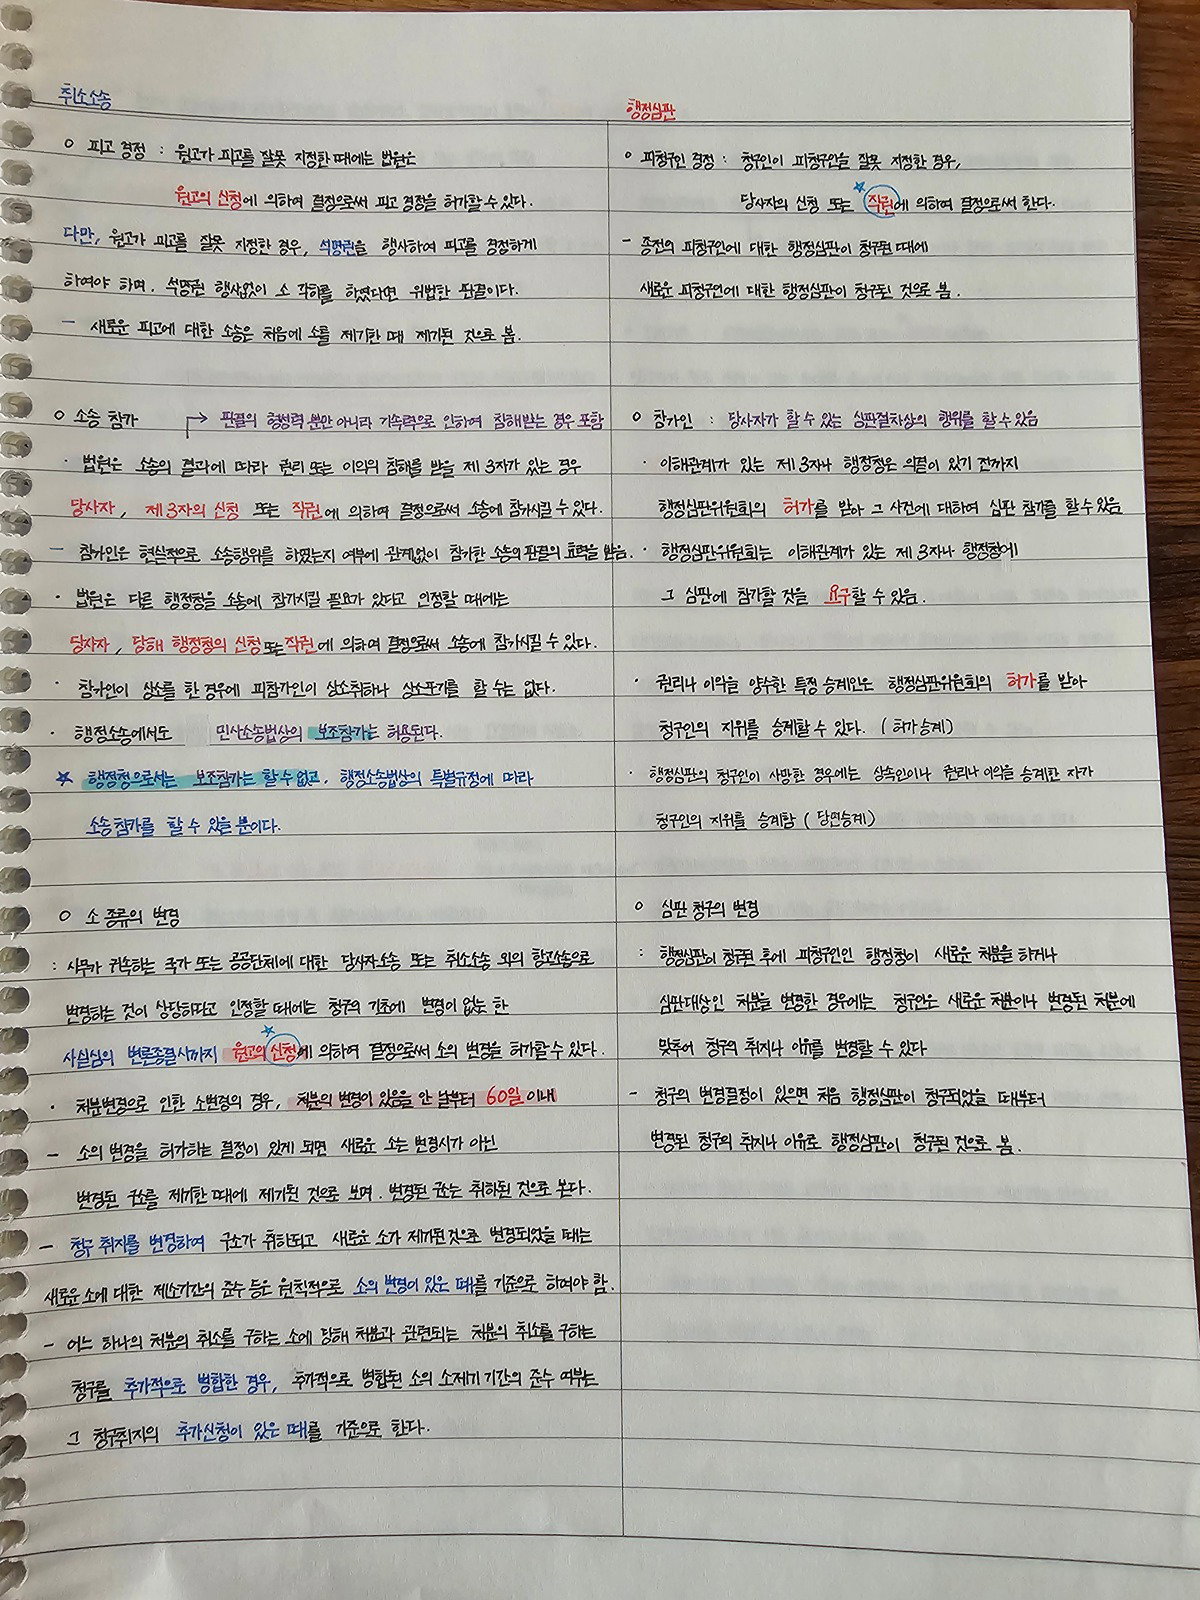 취소소송
○ 피고 경정 : 원고가 피고를 잘못 지정한 때에는 법원은
원고의 신청에 의하여 결정으로써 피고 경정을 허가할 수 있다.
다만, 원고가 피고를 잘못 지정한 경우, 석명권을 행사하여 피고를 경정하게
하여야 하며, 석명권 행사없이 소 각하를 하였다면 위법한 판결이다.
- 새로운 피고에 대한 소송은 처음에 소를 제기한 때 제기된 것으로 봄.
○ 소송 참가 → 판결의 형성력 뿐만 아니라 기속력으로 인하여 침해받는 경우 포함
· 법원은 소송의 결과에 따라 권리 또는 이익의 침해를 받을 제 3자가 있는 경우
당사자, 제 3자의 신청 또는 직권에 의하여 결정으로써 소송에 참가시킬 수 있다.
- 참가인은 현실적으로 소송행위를 하였는지 여부에 관계없이 참가한 소송의 판결의 효력을 받음.
· 법원은 다른 행정청을 소송에 참가시킬 필요가 있다고 인정할 때에는
당사자, 당해 행정청의 신청 또는 직권에 의하여 결정으로써 소송에 참가시킬 수 있다.
· 참가인이 상소를 한 경우에 피참가인이 상소취하나 상소포기를 할 수는 없다.
· 행정소송에서도 민사소송법상의 보조참가는 허용된다.
★ 행정청으로서는 보조참가는 할 수 없고, 행정소송법상의 특별규정에 따라
소송참가를 할 수 있을 뿐이다.
○ 소 종류의 변경
: 사무가 귀속하는 국가 또는 공공단체에 대한 당사자소송 또는 취소소송 외의 항고소송으로
변경하는 것이 상당하다고 인정할 때에는 청구의 기초에 변경이 없는 한
사실심의 변론종결시까지 원고의 신청에 의하여 결정으로써 소의 변경을 허가할 수 있다.
· 처분변경으로 인한 소변경의 경우, 처분의 변경이 있음을 안 날부터 60일 이내
- 소의 변경을 허가하는 결정이 있게 되면 새로운 소는 변경시가 아닌
변경된 구소를 제기한 때에 제기된 것으로 보며, 변경된 구소는 취하된 것으로 본다.
- 청구 취지를 변경하여 구소가 취하되고 새로운 소가 제기된 것으로 변경되었을 때는
새로운 소에 대한 제소기간의 준수 등은 원칙적으로 소의 변경이 있은 때를 기준으로 하여야 함.
- 어느 하나의 처분의 취소를 구하는 소에 당해 처분과 관련되는 처분의 취소를 구하는
청구를 추가적으로 병합한 경우, 추가적으로 병합된 소의 소제기 기간의 준수 여부는
그 청구취지의 추가신청이 있은 때를 기준으로 한다.
행정심판
○ 피청구인 경정 : 청구인이 피청구인을 잘못 지정한 경우,
당사자의 신청 또는 ★직권에 의하여 결정으로써 한다.
- 종전의 피청구인에 대한 행정심판이 청구된 때에
새로운 피청구인에 대한 행정심판이 청구된 것으로 봄.
○ 참가인 : 당사자가 할 수 있는 심판절차상의 행위를 할 수 있음
· 이해관계가 있는 제 3자나 행정청은 의결이 있기 전까지
행정심판위원회의 허가를 받아 그 사건에 대하여 심판 참가를 할 수 있음
· 행정심판위원회는 이해관계가 있는 제 3자나 행정청에
그 심판에 참가할 것을 요구할 수 있음.
· 권리나 이익을 양수한 특정 승계인은 행정심판위원회의 허가를 받아
청구인의 지위를 승계할 수 있다. (허가승계)
· 행정심판의 청구인이 사망한 경우에는 상속인이나 권리나 이익을 승계한 자가
청구인의 지위를 승계함 (당연승계)
○ 심판 청구의 변경
: 행정심판이 청구된 후에 피청구인인 행정청이 새로운 처분을 하거나
심판대상인 처분을 변경한 경우에는 청구인은 새로운 처분이나 변경된 처분에
맞추어 청구의 취지나 이유를 변경할 수 있다
- 청구의 변경결정이 있으면 처음 행정심판이 청구되었을 때부터
변경된 청구의 취지나 이유로 행정심판이 청구된 것으로 봄.